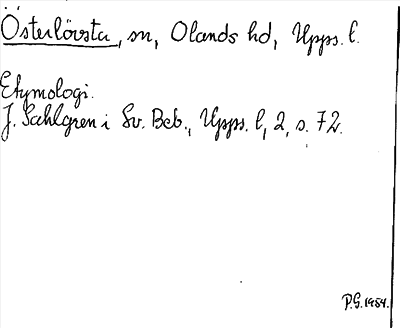 Österlövsta, sn, Olands hd, Upps. l.
Etymologi.
J. Sahlgren i Sv. Beb., Upps. l, 2, s. 72.
P.G. 1954.